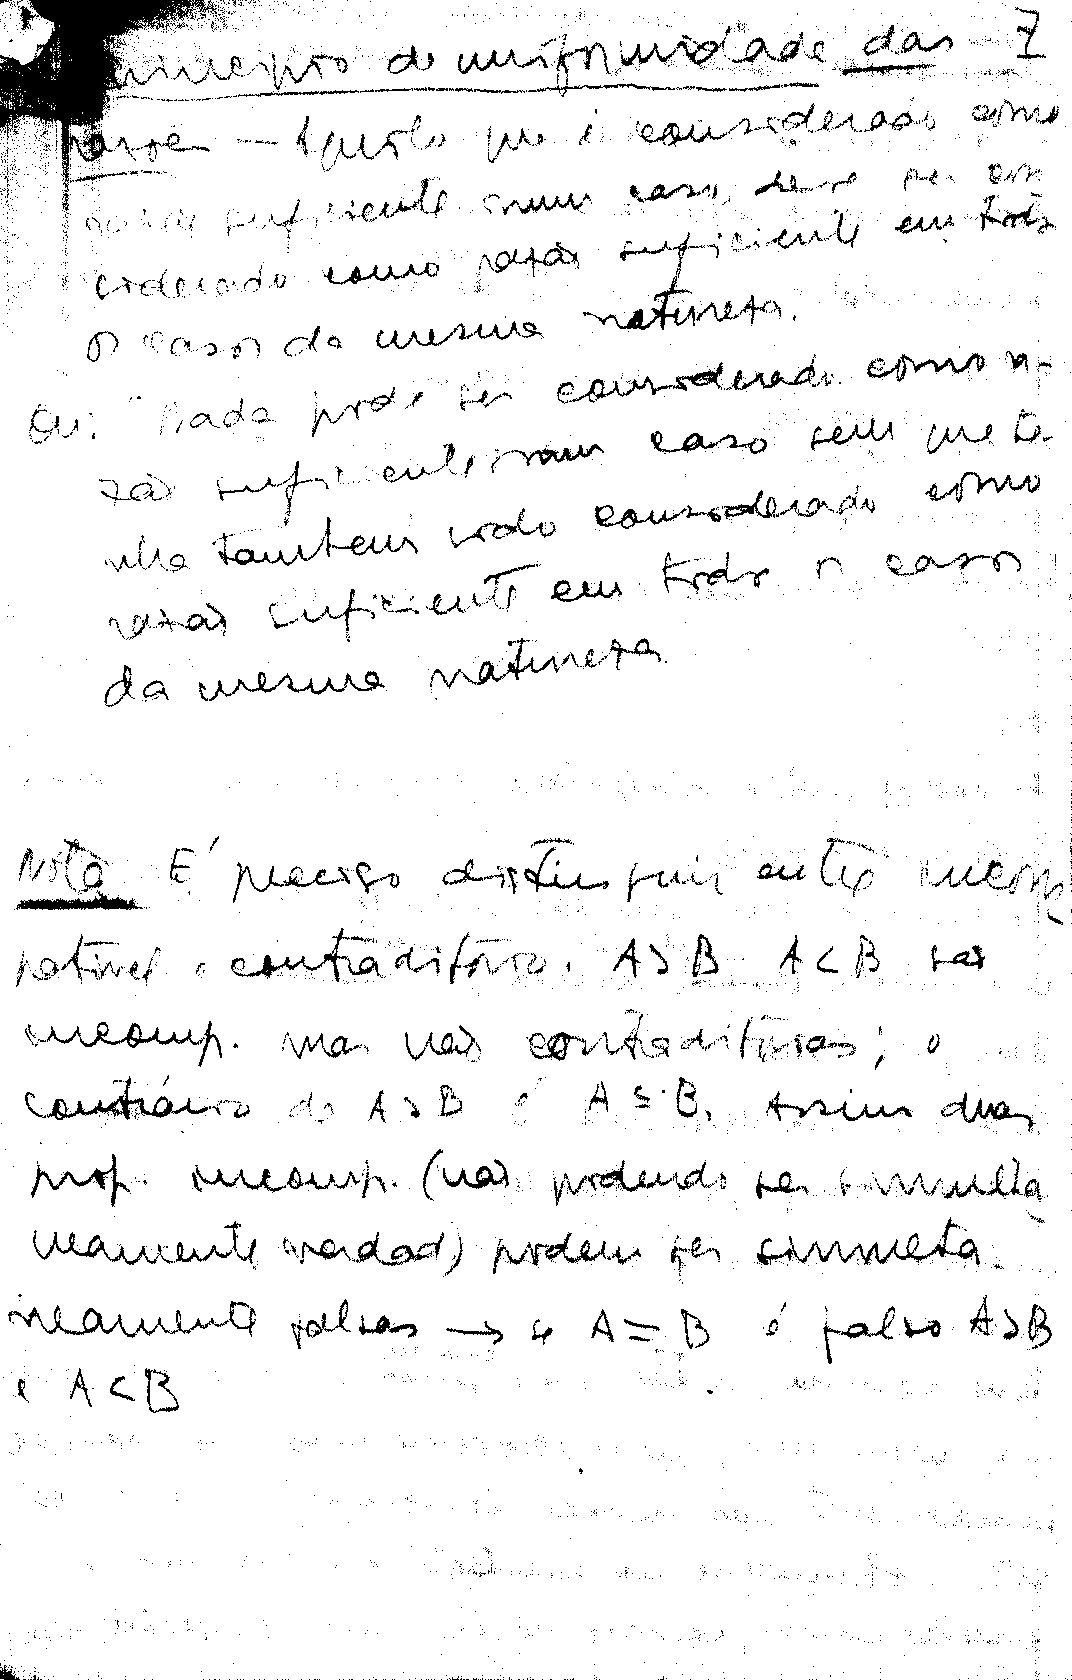 Princípio de uniformidade das 7
razões — Aquilo que é considerado como
razão suficiente num caso, deve ser con
siderado como razão suficiente em todos
os casos da mesma natureza.
Ou: "Nada pode ser considerado como ra-
zão suficiente num caso sem que te-
nha também sido considerado como
razão suficiente em todos os casos
da mesma natureza
Nota É preciso distinguir entre incom
patível e contraditório. A>B A<B são
incomp. mas não contraditórias; o
contrário de A>B é A≤B. Assim duas
prop. incomp. (não podendo ser simultâ
neamente verdad) podem ser simultâ-
neamente falsas → se A=B é falso A>B
e A<B